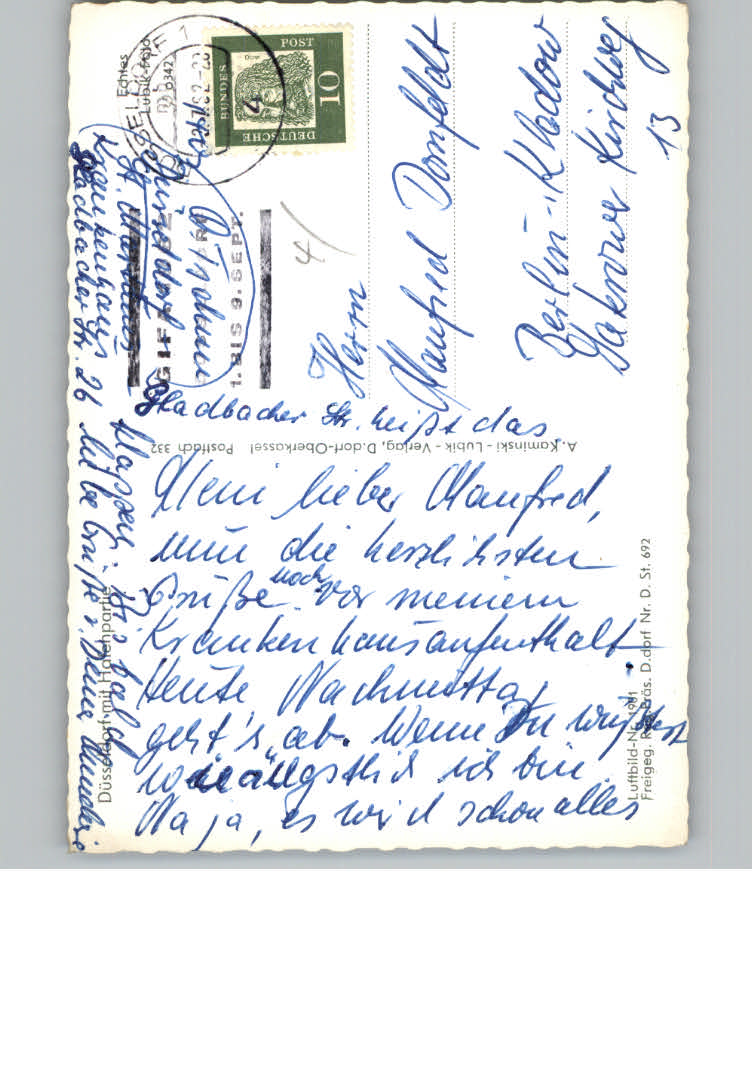 Mein lieber Manfred,
nun die herzlichsten
Grüße noch vor meinem
Krankenhausaufenthalt.
Heute Nachmittag
geht's ab. Wenn Du wüßtest
wie ängstlich ich bin
Na ja, es wird schon alles
klappen. Bis bald
Gladbacher Str. 26 Liebe Grüße, Deine
Krankenhaus
Düsseldorf
Gladbacher Str. heißt das
Herrn
Manfred Domfeldt
Berlin-Kladow
Sakrower Kirchweg
13
4
1. BIS 9. SEPT.
DEUTSCHE
BUNDES
POST
10
Echtes
Lubik-Foto
6342
A. Kaminski - Lubik - Verlag, D.dorf-Oberkassel Postfach 332
Düsseldorf mit Hafenpartie
Luftbild-Nr. 981
Freigeg. Reg. Präs. D.dorf Nr. D. St. 692